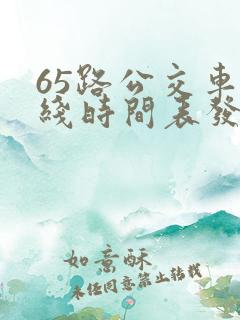 65路公交車
綫時間表發
如意酥
未经同意禁止转载